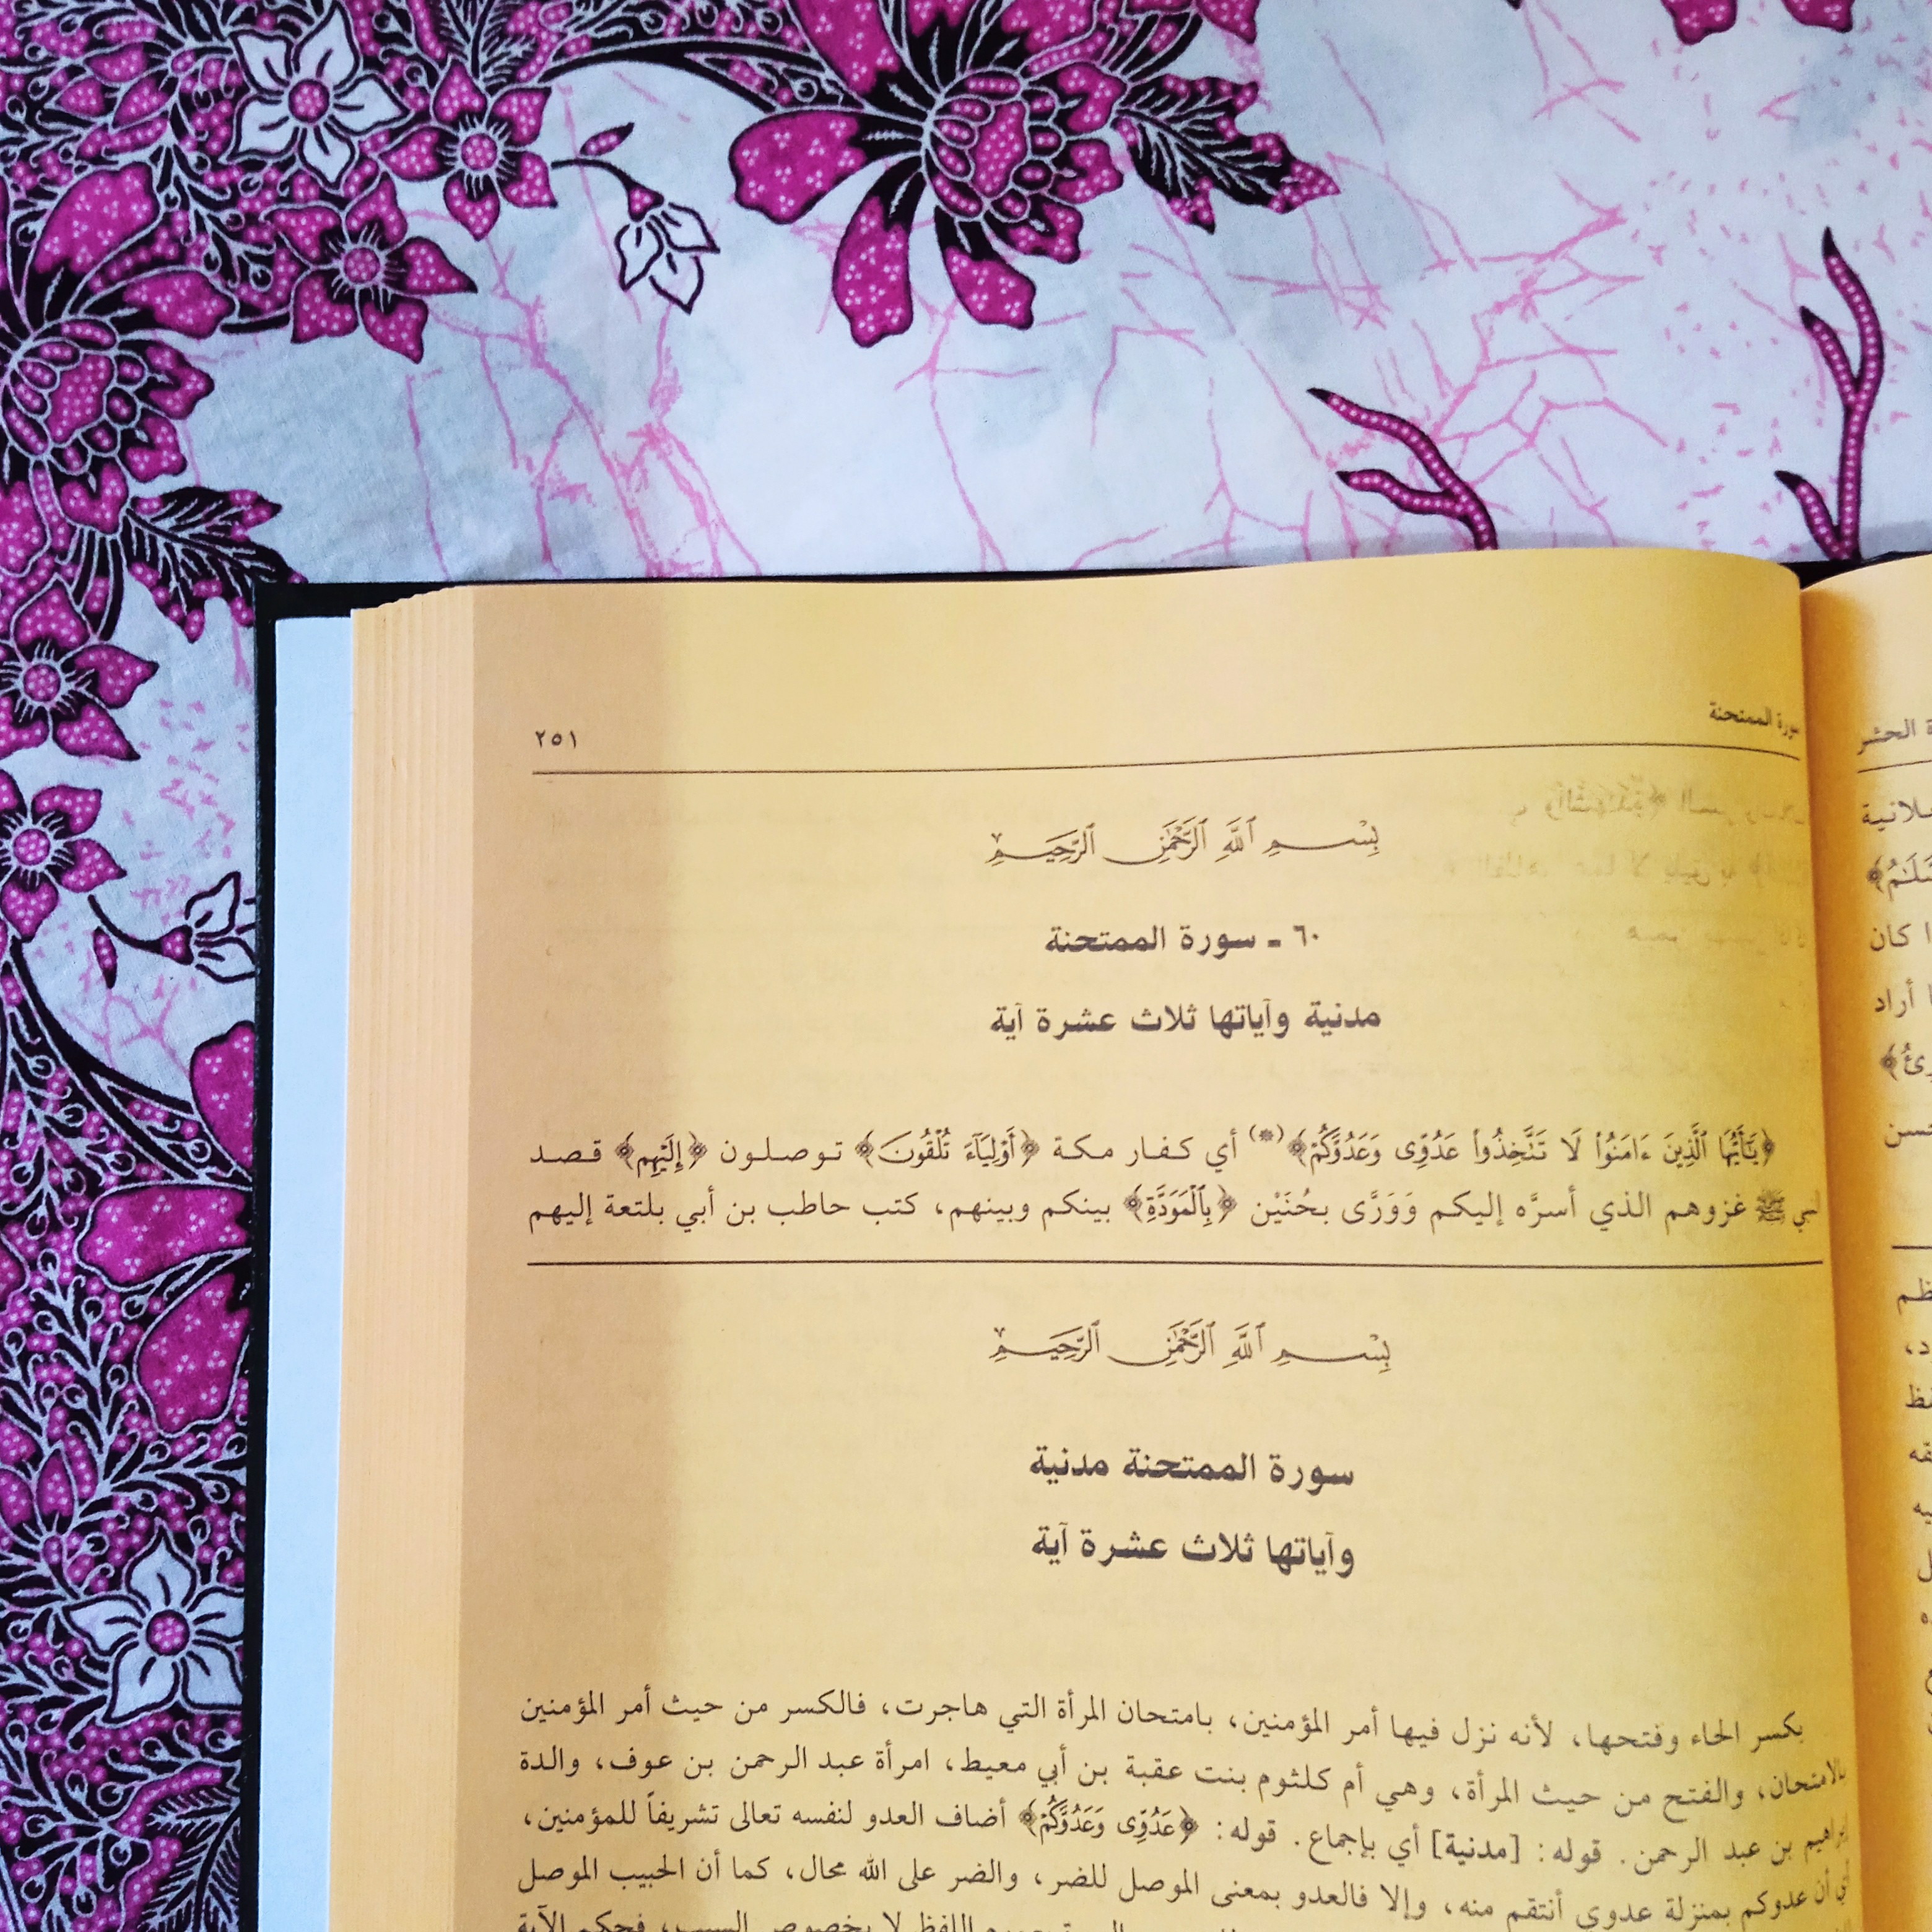 سورة الممتحنة
٢٥١
بِسْمِ ٱللَّهِ ٱلرَّحْمَٰنِ ٱلرَّحِيمِ
٦٠ ـ سورة الممتحنة
مدنية وآياتها ثلاث عشرة آية
﴿يَٰٓأَيُّهَا ٱلَّذِينَ ءَامَنُوا۟ لَا تَتَّخِذُوا۟ عَدُوِّى وَعَدُوَّكُمْ﴾(*) أي كفار مكة ﴿أَوْلِيَآءَ تُلْقُونَ﴾ توصلون ﴿إِلَيْهِم﴾ قصد
النبي ﷺ غزوهم الذي أسرَّه إليكم وَوَرَّى بحُنَيْن ﴿بِٱلْمَوَدَّةِ﴾ بينكم وبينهم، كتب حاطب بن أبي بلتعة إليهم
بِسْمِ ٱللَّهِ ٱلرَّحْمَٰنِ ٱلرَّحِيمِ
سورة الممتحنة مدنية
وآياتها ثلاث عشرة آية
بكسر الحاء وفتحها، لأنه نزل فيها أمر المؤمنين، بامتحان المرأة التي هاجرت، فالكسر من حيث أمر المؤمنين
بالامتحان، والفتح من حيث المرأة، وهي أم كلثوم بنت عقبة بن أبي معيط، امرأة عبد الرحمن بن عوف، والدة
إبراهيم بن عبد الرحمن. قوله: [مدنية] أي بإجماع. قوله: ﴿عَدُوِّى وَعَدُوَّكُمْ﴾ أضاف العدو لنفسه تعالى تشريفاً للمؤمنين،
أي أن عدوكم بمنزلة عدوي أنتقم منه، وإلا فالعدو بمعنى الموصل للضر، والضر على الله محال، كما أن الحبيب الموصل
اللفظ لا بخصوص السبب، فحكم الآية
الحشر
كان
أراد